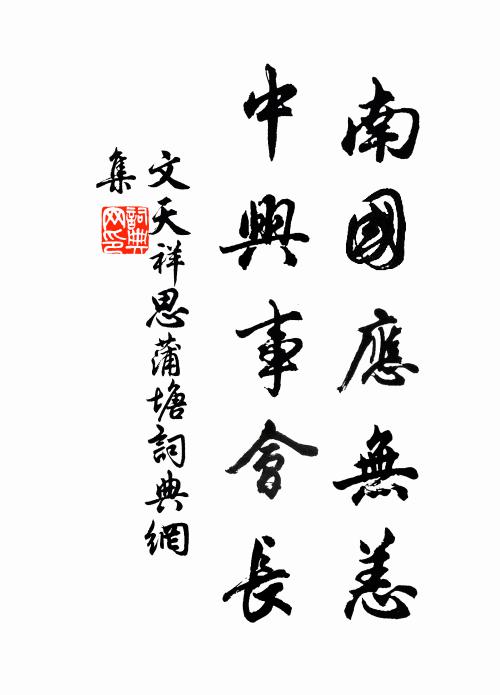 南國應無恙
中興事會長
文天祥思蒲塘詞典網
集
詞典
网印